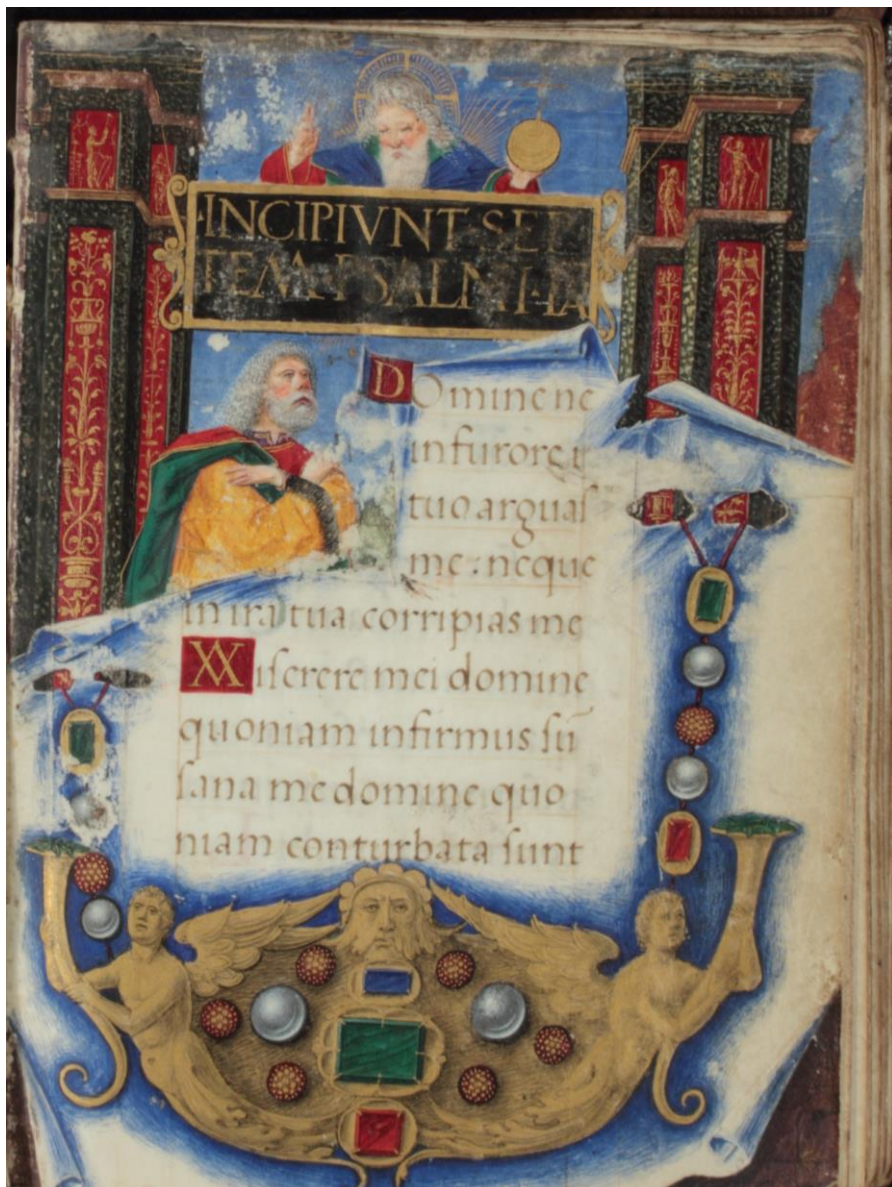 ·INCIPIVNT·SEP
TEM·PSALMI·
DOmine ne
in furore
tuo arguaſ
me: neque
in ira tua corripias me
Miſerere mei domine
quoniam infirmus ſū
ſana me domine quo
niam conturbata ſunt